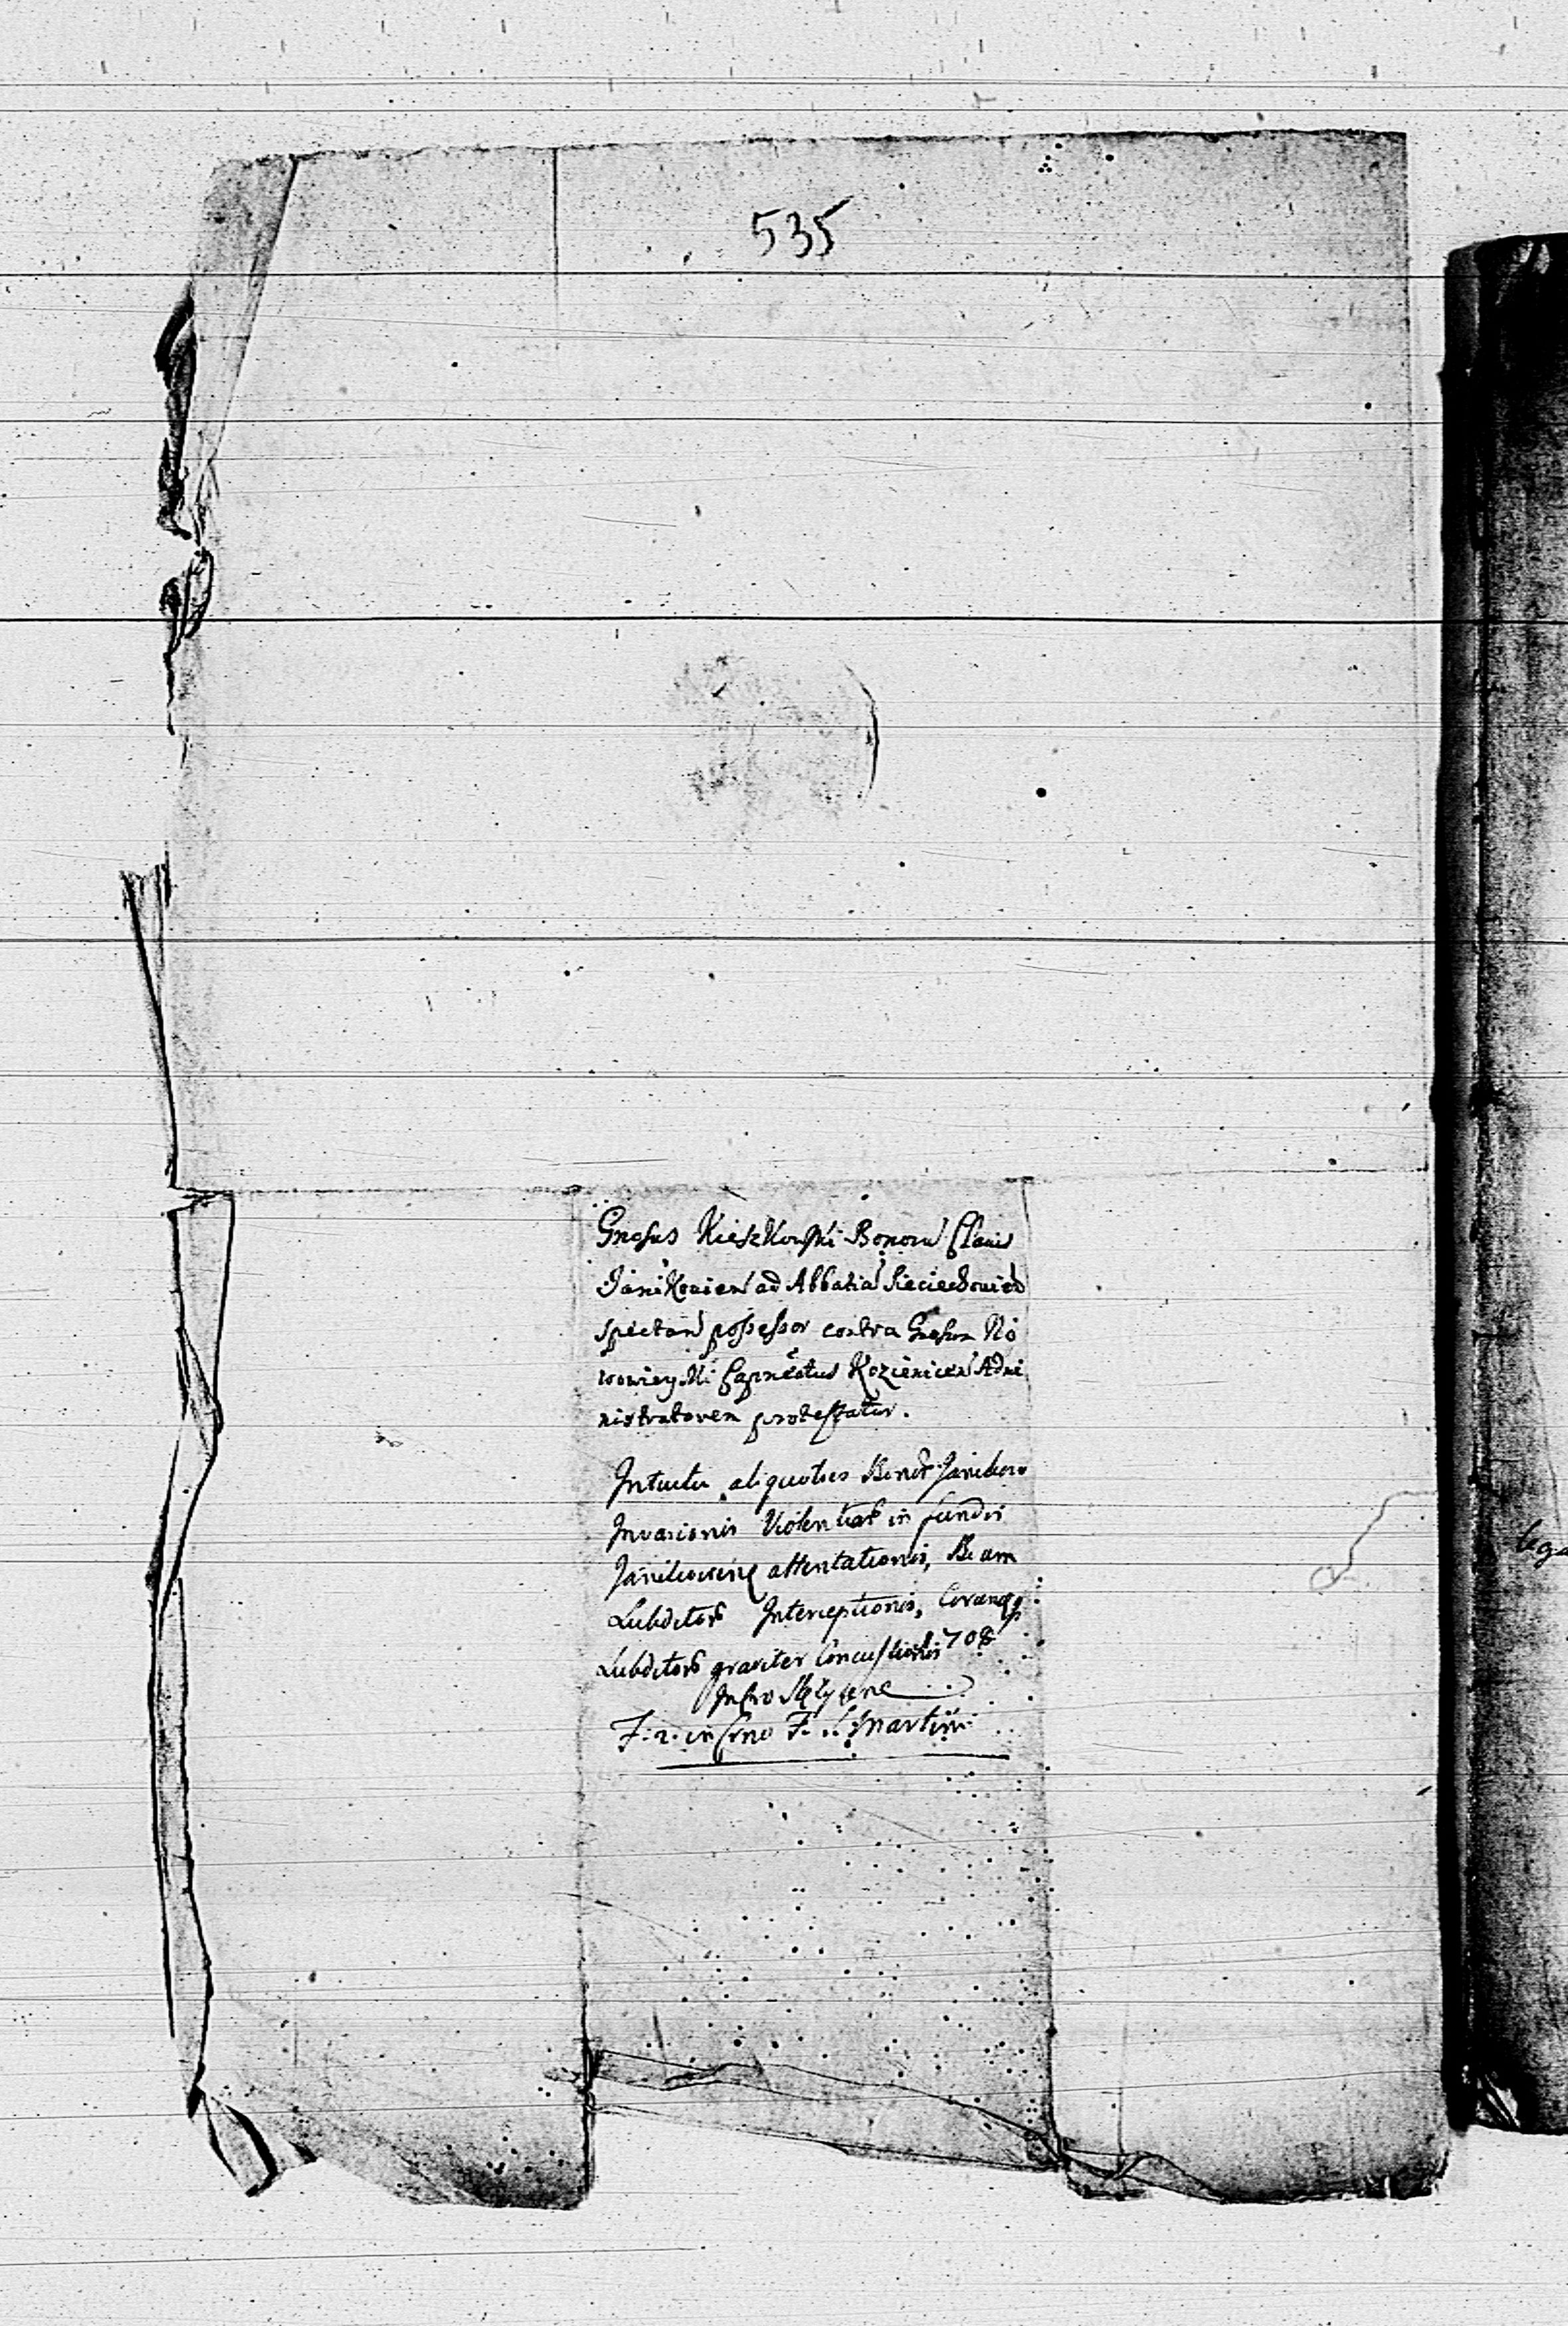 535
Gnosus Kieszkowski Bonorum Clavis
Janikovien ad Abbatia Sieciechovien
spectan possessor contra Gnosum No
wowiey Mi Capneatus Kozienicen Admi
nistratorem protestatur.
Intuitu aliquoties Bonor Janikow
Invasionis Violentiar in fundis
attentationis, Boum
Subditor Interceptionis,
Subditor graviter Concussionis
F. 2. in Crno F. S. Martini
lega